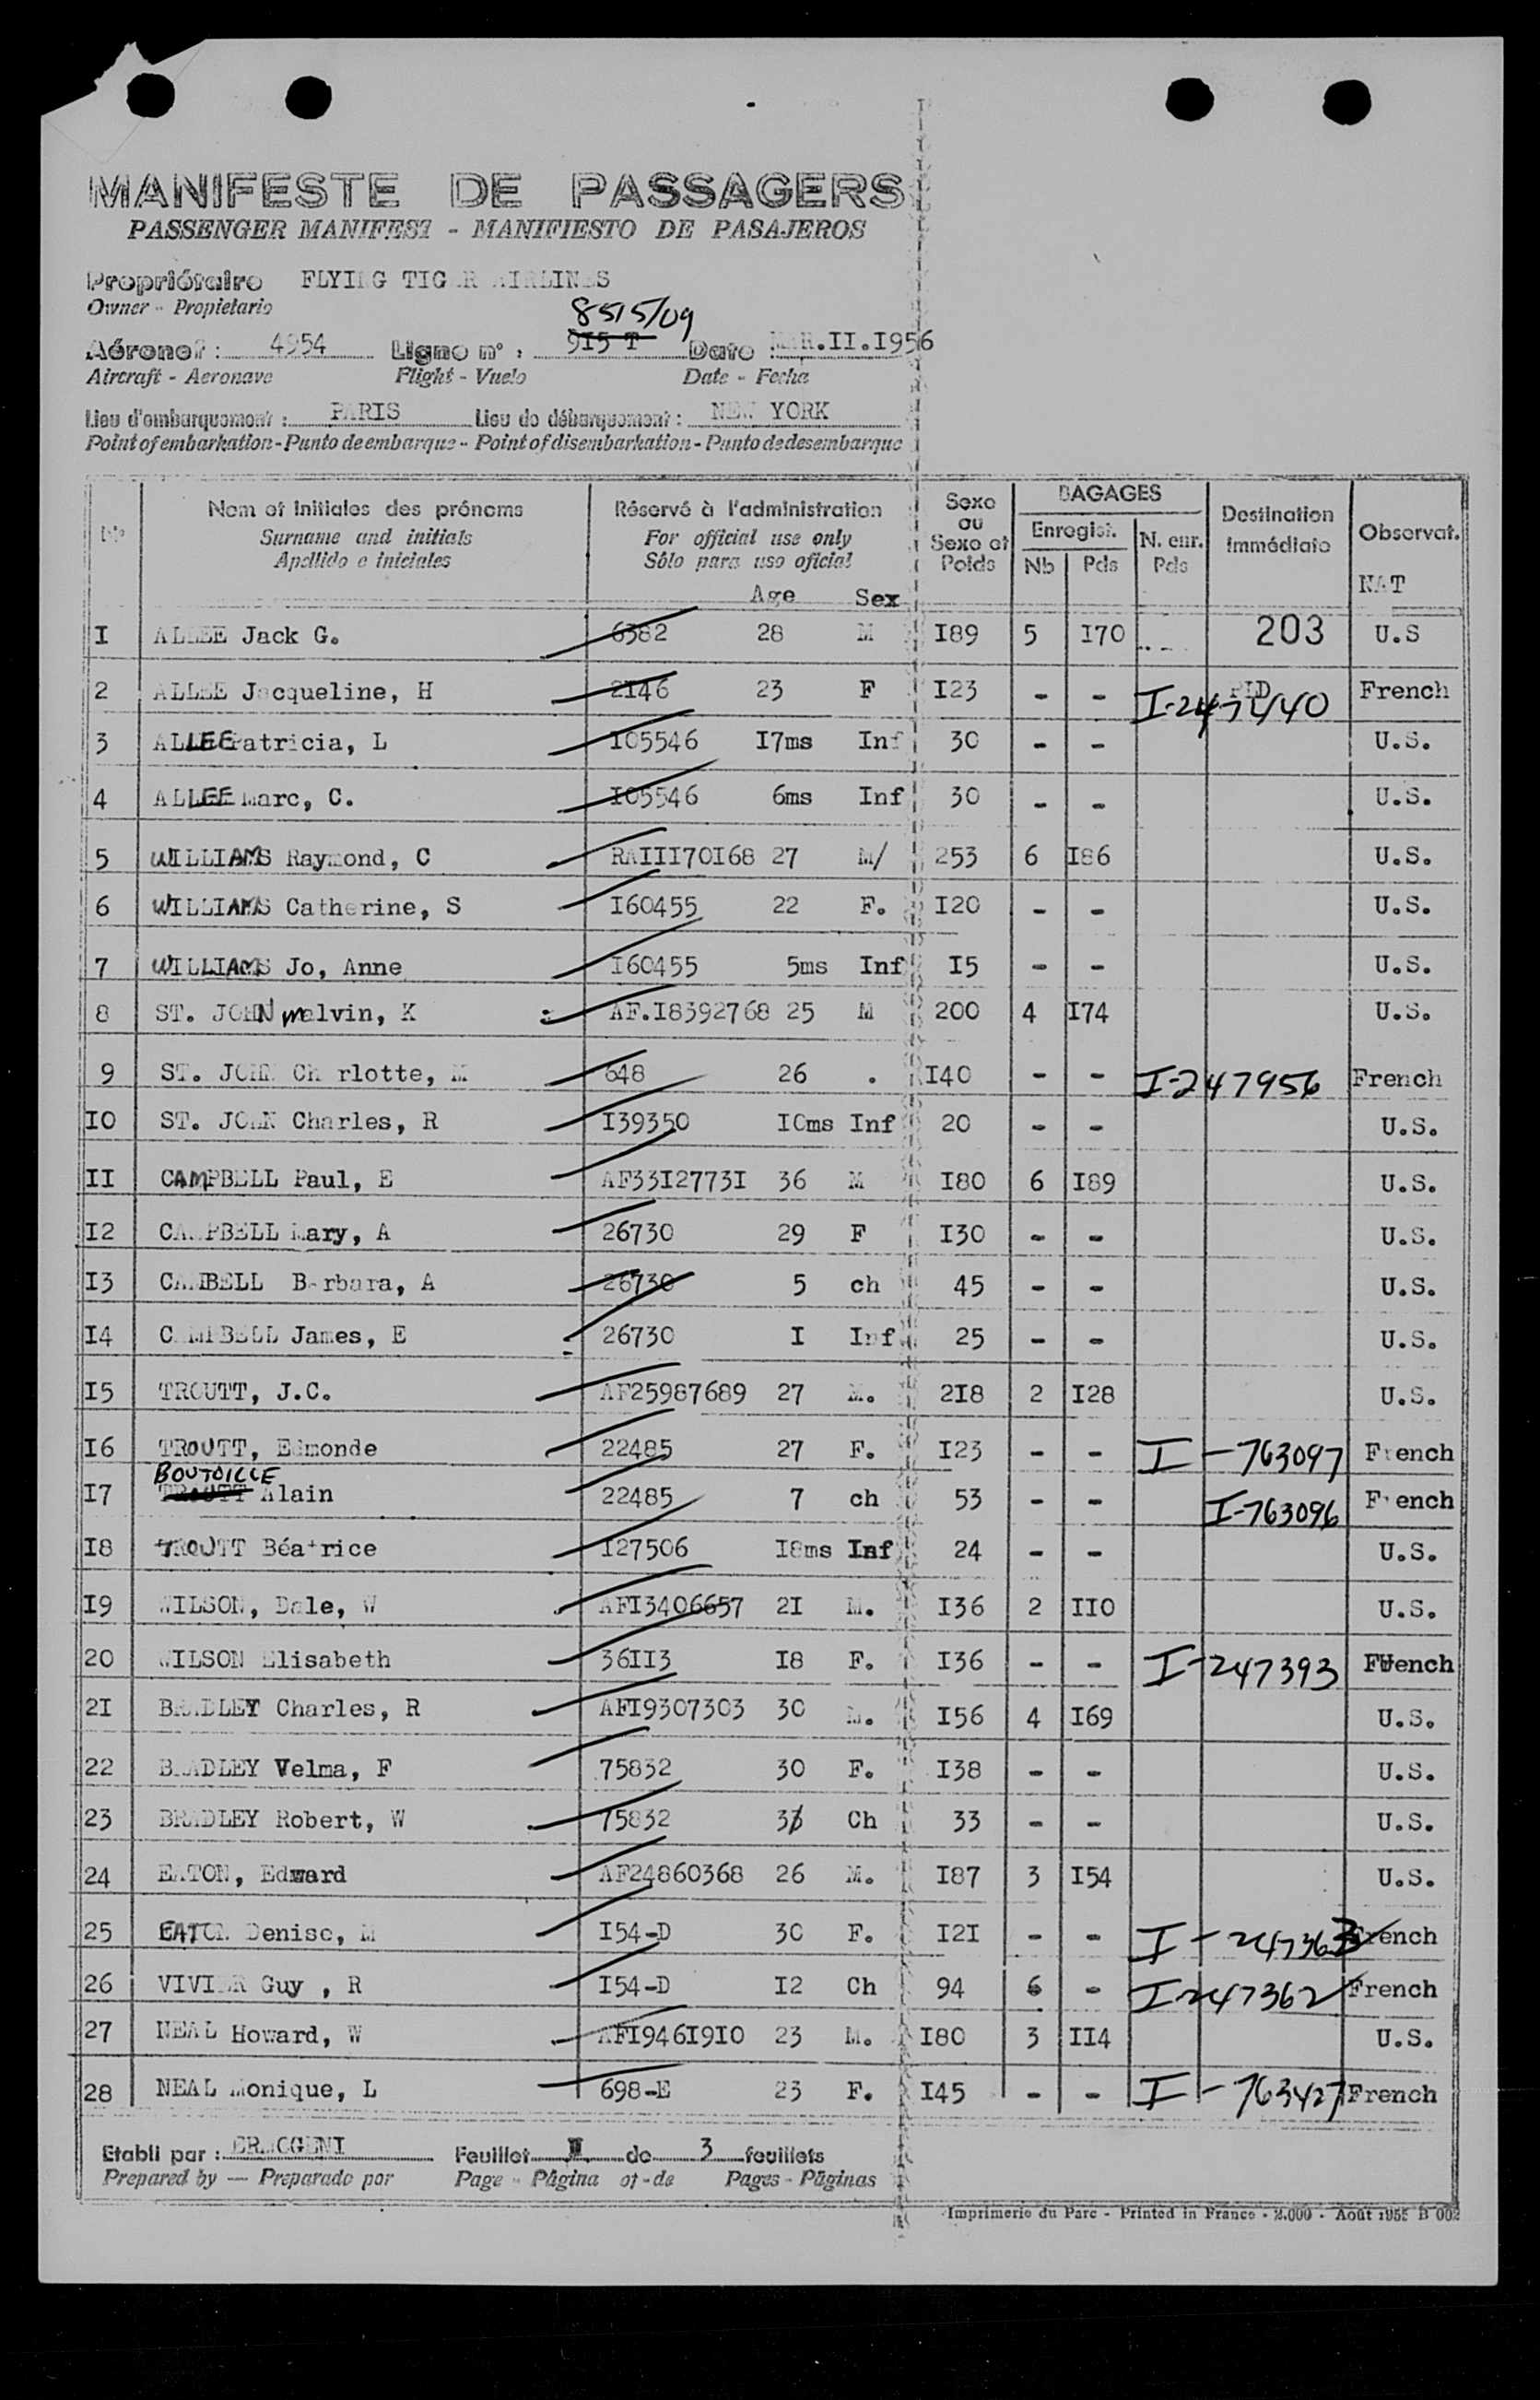 MANIFESTE DE PASSAGERS
PASSENGER MANIFEST - MANIFIESTO DE PASAJEROS
Propriétaire FLYING TIGER AIRLINES
Owner - Propietario
8515/09
Aéronef : 4954 Ligne n° : 915 T Date : MAR.II.I956
Aircraft - Aeronave Flight - Vuelo Date - Fecha
Lieu d'embarquement : PARIS Lieu de débarquement : NEW YORK
Point of embarkation - Punto de embarque - Point of disembarkation - Punto de desembarque
N° Nom et initiales des prénoms Réservé à l'administration Sexe ou Sexe et Poids BAGAGES Destination immédiate Observat.
Surname and initials For official use only Enregist. N. enr. Pds
Apellido e iniciales Sôlo para uso oficial Nb Pds
Age Sex NAT
I ALLEE Jack G. 6382 28 M I89 5 I70 203 U.S
2 ALLEE Jacqueline, H 2I46 23 F I23 - - French
3 ALLEE Patricia, L I05546 I7ms Inf 30 - - U.S.
4 ALLEE Marc, C. I05546 6ms Inf 30 - - U.S.
5 WILLIAMS Raymond, C RAIII70I68 27 M/ 253 6 I86 U.S.
6 WILLIAMS Catherine, S I60455 22 F. I20 - - U.S.
7 WILLIAMS Jo, Anne I60455 5ms Inf I5 - - U.S.
8 ST. JOHN Melvin, K AF.I8392768 25 M 200 4 I74 U.S.
9 ST. JOHN Ch rlotte, M 648 26 . I40 - - I-247956 French
I0 ST. JOHN Charles, R I39350 I0ms Inf 20 - - U.S.
II CAMPBELL Paul, E AF33I2773I 36 M I80 6 I89 U.S.
I2 CAMPBELL Mary, A 26730 29 F I30 - - U.S.
I3 CAMBELL Barbara, A 26730 5 ch 45 - - U.S.
I4 CAMPBELL James, E 26730 I Inf 25 - - U.S.
I5 TROUTT, J.C. AF25987689 27 M. 2I8 2 I28 U.S.
I6 TROUTT, Edmonde 22485 27 F. I23 - - I-763097 French
BOUTOILLE
I7 TROUTT Alain 22485 7 ch 53 - - I-763096 French
I8 TROUTT Béatrice I27506 I8ms Inf 24 - - U.S.
I9 WILSON, Dale, W AFI3406657 2I M. I36 2 II0 U.S.
20 WILSON Elisabeth 36II3 I8 F. I36 - - I-247393 French
2I BRADLEY Charles, R AFI9307303 30 M. I56 4 I69 U.S.
22 BRADLEY Velma, F 75832 30 F. I38 - - U.S.
23 BRADLEY Robert, W 75832 3 Ch 33 - - U.S.
24 EATON, Edward AF24860368 26 M. I87 3 I54 U.S.
25 EATON Denise, M I54-D 30 F. I2I - - I-247363 French
26 VIVIER Guy , R I54-D I2 Ch 94 - I-247362 French
27 NEAL Howard, W AFI946I9I0 23 M. I80 3 II4 U.S.
28 NEAL Monique, L 698-E 23 F. I45 - - I-763427 French
Etabli par : Feuillet de 3 feuillets
Prepared by — Preparado por Page - Página of - de Pages - Páginas
Imprimerie du Parc - Printed in France - 2.000 - Août 1955 B 002